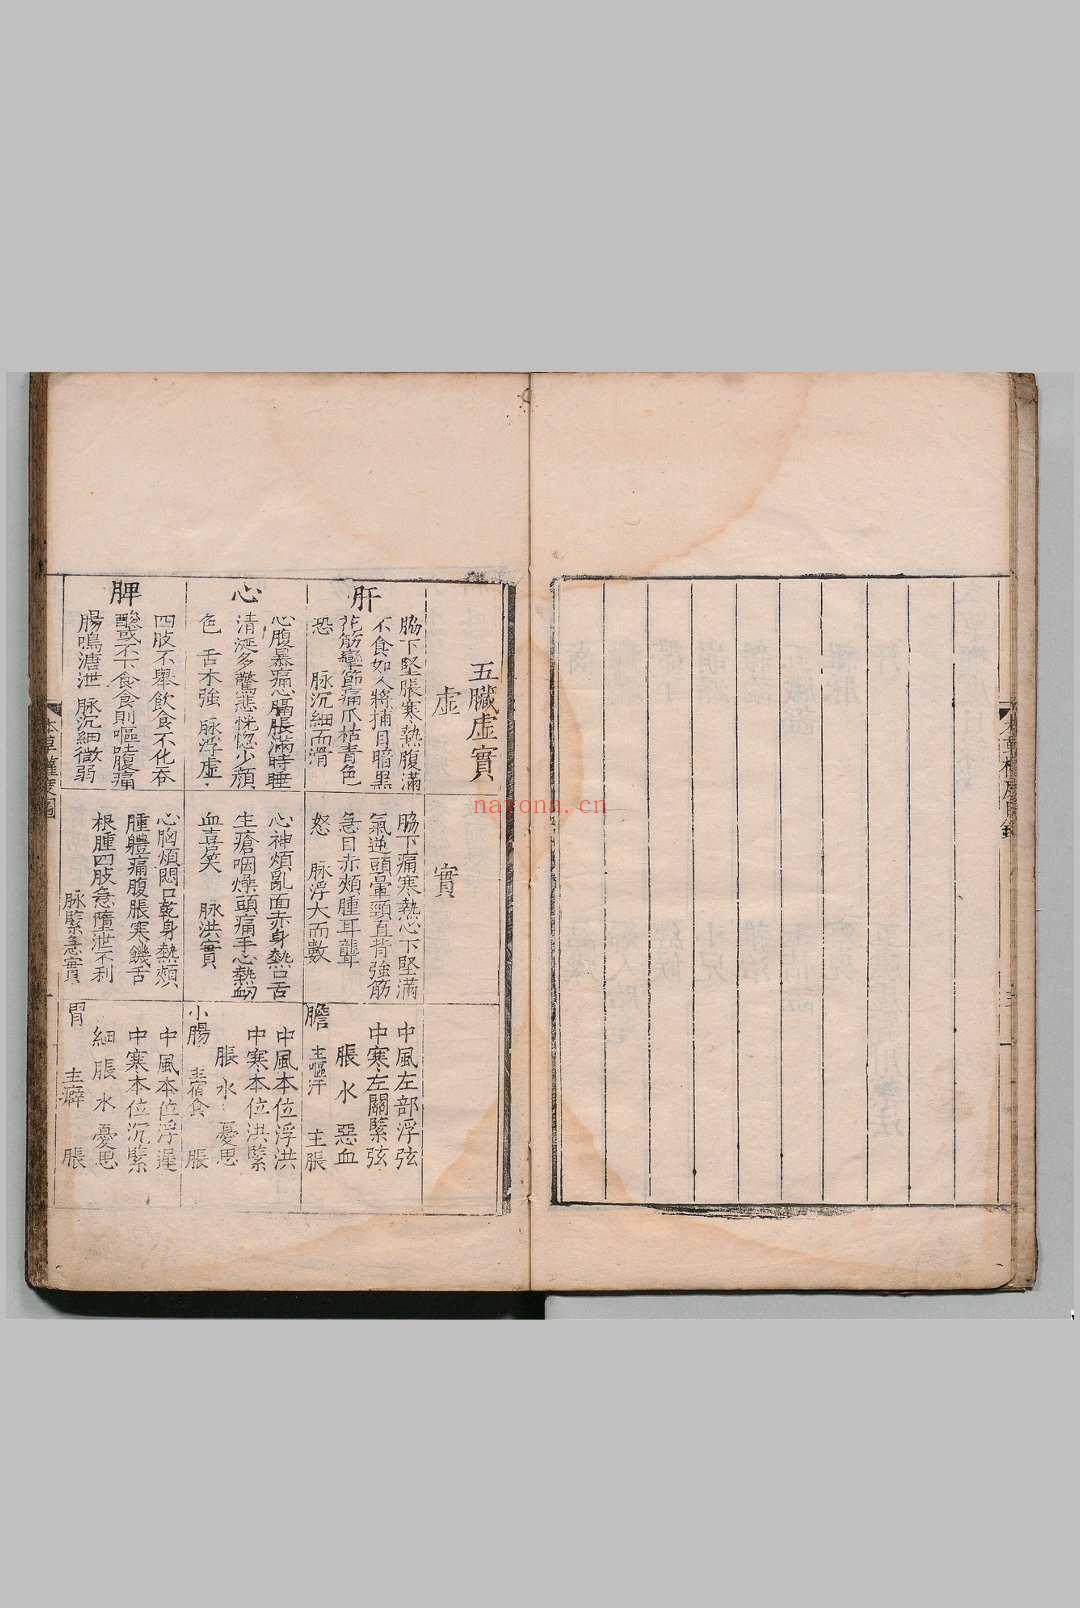 五臟虛實
虛
實
肝
脇下堅脹寒熱腹滿
不食如人將捕目暗黑
花筋攣節痛爪枯青色
恐 脉沉細而滑
脇下痛寒熱心下堅滿
氣逆頭暈頸直背強筋
急目赤頰腫耳聾
怒 脉浮大而數
中風左部浮弦
中寒左關緊弦
脹水 惡血
膽 主嘔汗 主脹
心
心腹暴痛心膈脹滿時唾
清涎多驚悲恍惚少顏
色 舌木強 脉浮虛
心神煩亂面赤身熱口舌
生瘡咽燥頭痛手心熱衂
血喜笑 脉洪實
中風本位浮洪
中寒本位洪緊
脹水 憂思
小腸 主宿食 脹
脾
四肢不舉飲食不化吞
酸或不下食食則嘔腹痛
腸鳴溏泄 脉沉細微弱
心胸煩悶口乾身熱頰
腫體痛腹脹寒饑舌
根腫四肢急墮泄不利
脉緊急實
中風本位浮遲
中寒本位沉緊
細 脹水 憂思
胃 主癖 脹
nayona.cn